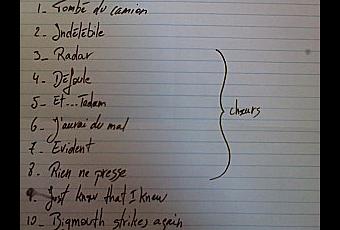 1_ Tombé du camion
2_ Indélébile
3_ Radar
4_ Défoule
5_ Et...Tadam
6_ J'aurai du mal
7_ Evident
8_ Rien ne presse
9_ Just know that I knew
10_ Bigmouth strikes again
chœurs